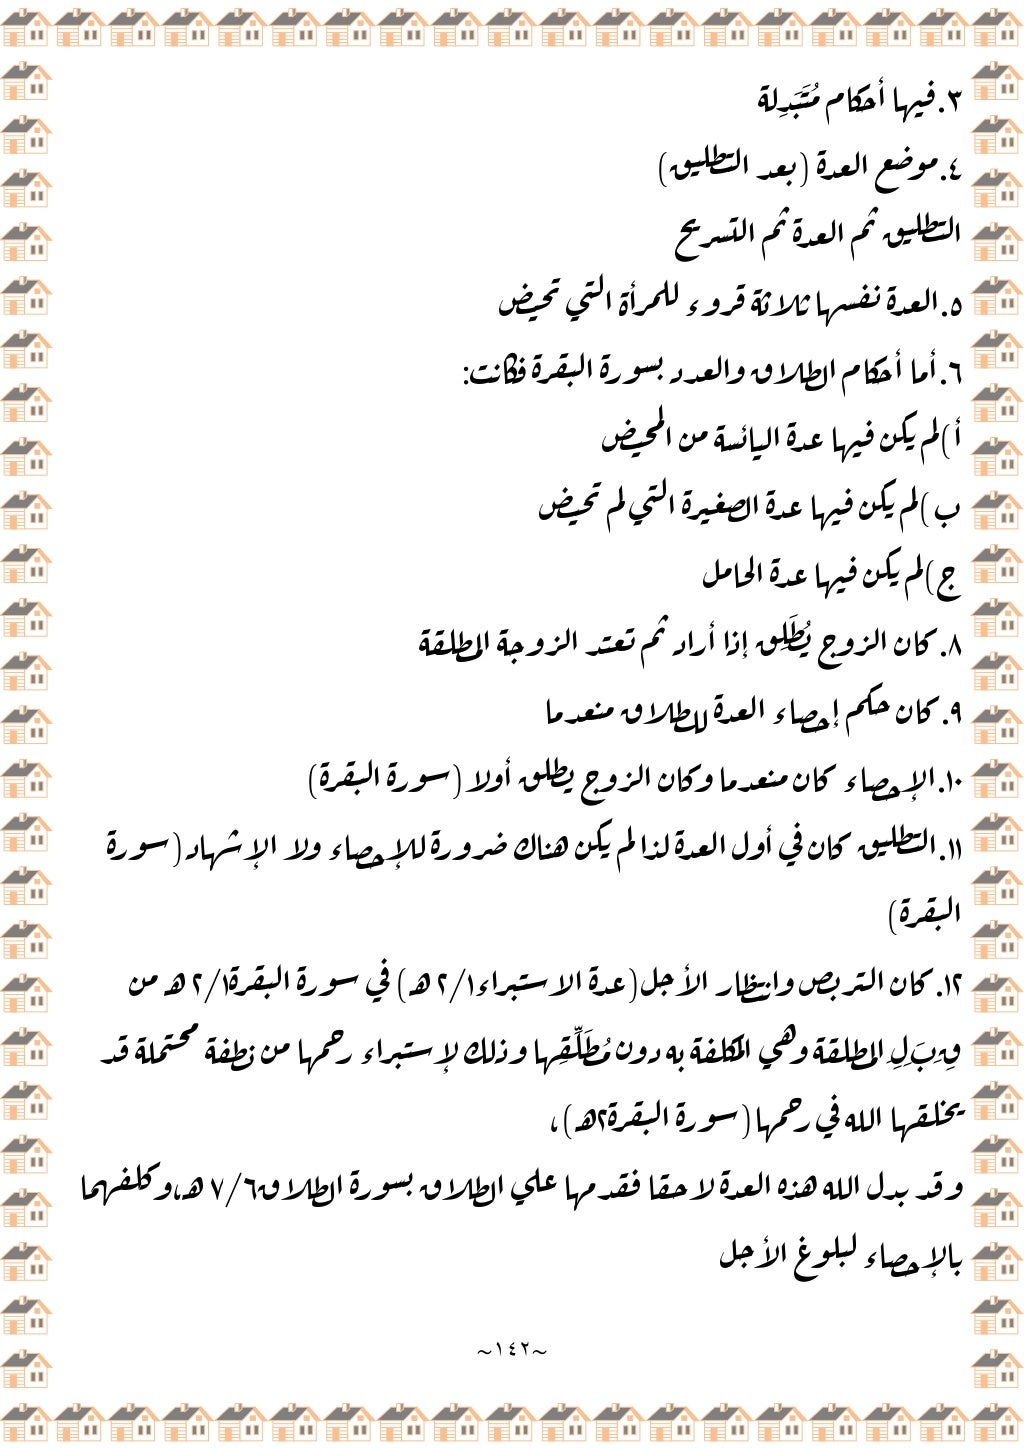 ٣.فيها أحكام مُتَبَدِلة
٤.موضع العدة (بعد التطليق)
التطليق ثم العدة ثم التسريح
٥.العدة نفسها ثلاثة قروء للمرأة التي تحيض
٦.أما أحكام الطلاق والعدد بسورة البقرة فكانت:
أ)لم يكن فيها عدة اليائسة من المحيض
ب)لم يكن فيها عدة الصغيرة التي لم تحيض
ج)لم يكن فيها عدة الحامل
٨. كان الزوج يُطَلِق إذا أراد ثم تعتد الزوجة المطلقة
٩. كان حكم إحصاء العدة للطلاق منعدما
١٠.الإحصاء كان منعدما وكان الزوج يطلق أولا (سورة البقرة)
١١.التطليق كان في أول العدة لذا لم يكن هناك ضرورة للإحصاء ولا الإشهاد (سورة
البقرة)
١٢. كان التربص وانتظار الأجل(عدة الاستبراء٢/١ هـ) في سورة البقرة٢/١ هـ من
قِبَلِ المطلقة وهي المكلفة به دون مُطَلِّقِها وذلك لإستبراء رحمها من نطفة محتملة قد
يخلقها الله في رحمها (سورة البقرة٢هـ)،
وقد بدل الله هذه العدة لاحقا فقدمها علي الطلاق بسورة الطلاق٧/٦ هـ،وكلفهما
بالإحصاء لبلوغ الأجل
~١٤٢~